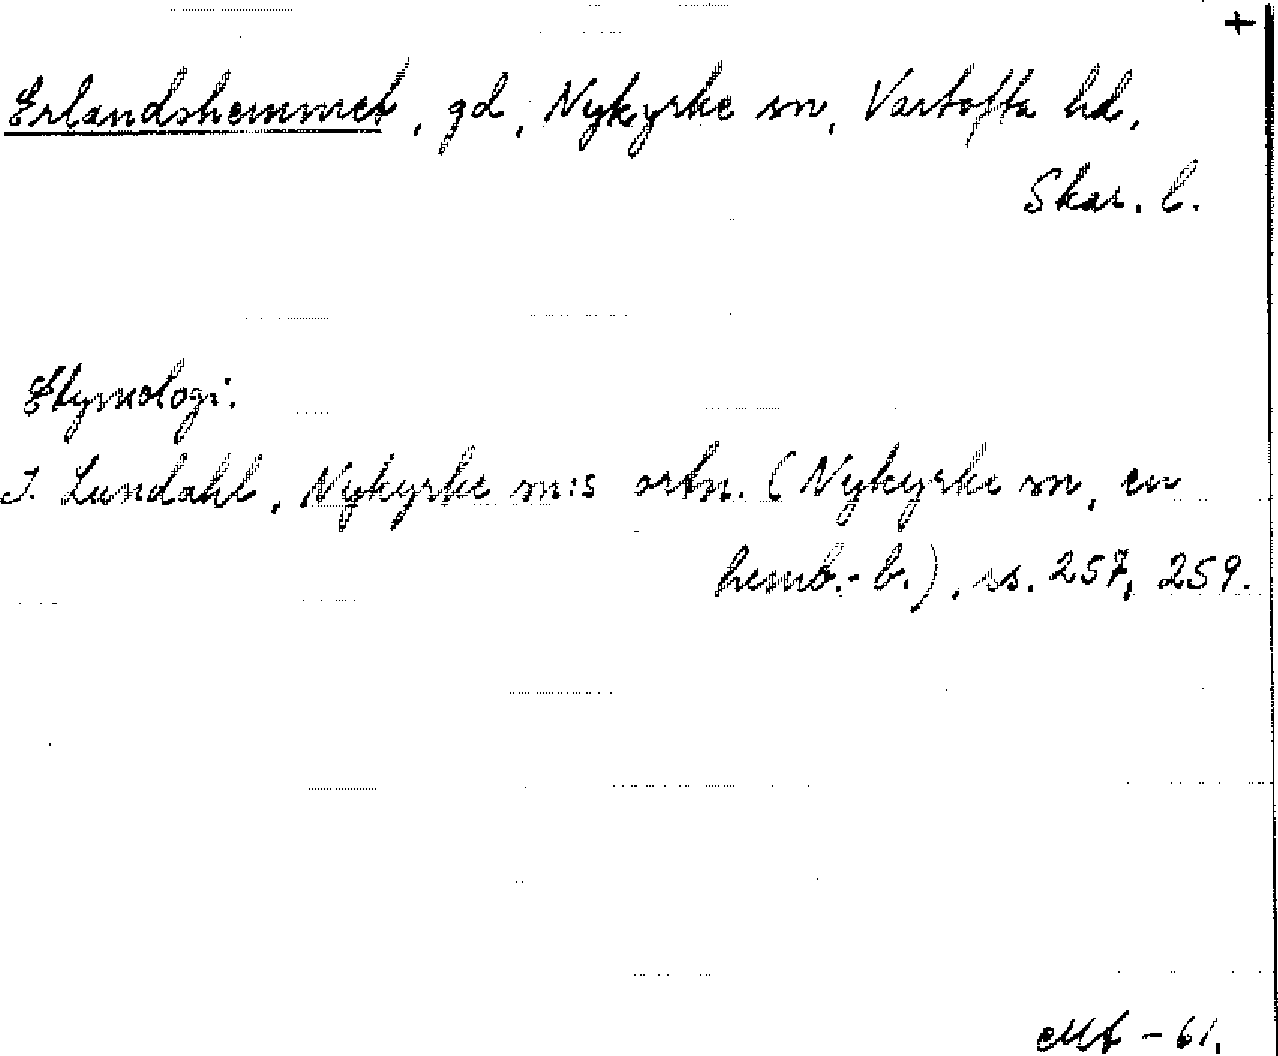 +
Erlandshemmet, gd, Nykyrke sn, Vartofta hd,
Skar. l.
Etymologi:
I. Lundahl, Nykyrke sn:s ortn. (Nykyrke sn, en
hemb.-b.), ss. 257, 259.
- 61.